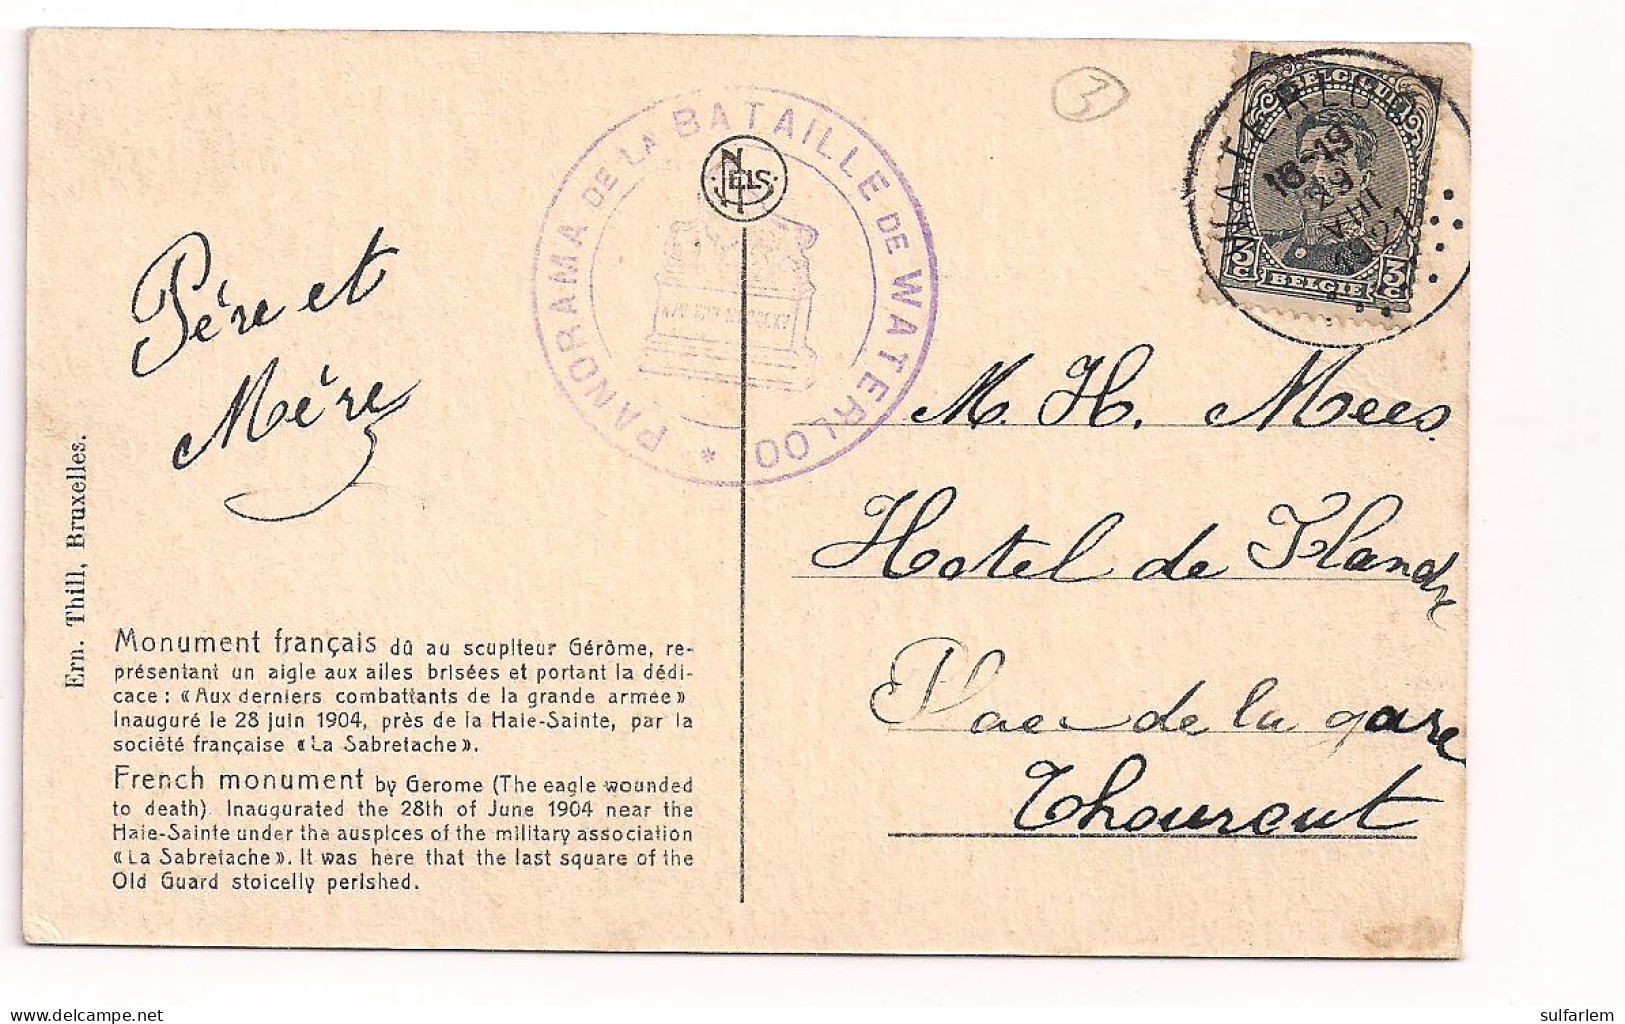 3
PANORAMA DE LA BATAILLE DE WATERLOO *
NELS
WATERLOO
18-19
29
VIII
1921
BELGIQUE
3c 3c
BELGIE
Père et
Mère
M. H. Mees.
Hotel de Flandre
Place de la gare
Thourout
Ern. Thill, Bruxelles.
Monument français dû au scuplteur Gérôme, re-
présentant un aigle aux ailes brisées et portant la dédi-
cace : « Aux derniers combattants de la grande armée »
Inauguré le 28 juin 1904, près de la Haie-Sainte, par la
société française « La Sabretache ».
French monument by Gerome (The eagle wounded
to death). Inaugurated the 28th of June 1904 near the
Haie-Sainte under the auspices of the military association
« La Sabretache ». It was here that the last square of the
Old Guard stoicelly perished.
delcampe.net
sulfarlem